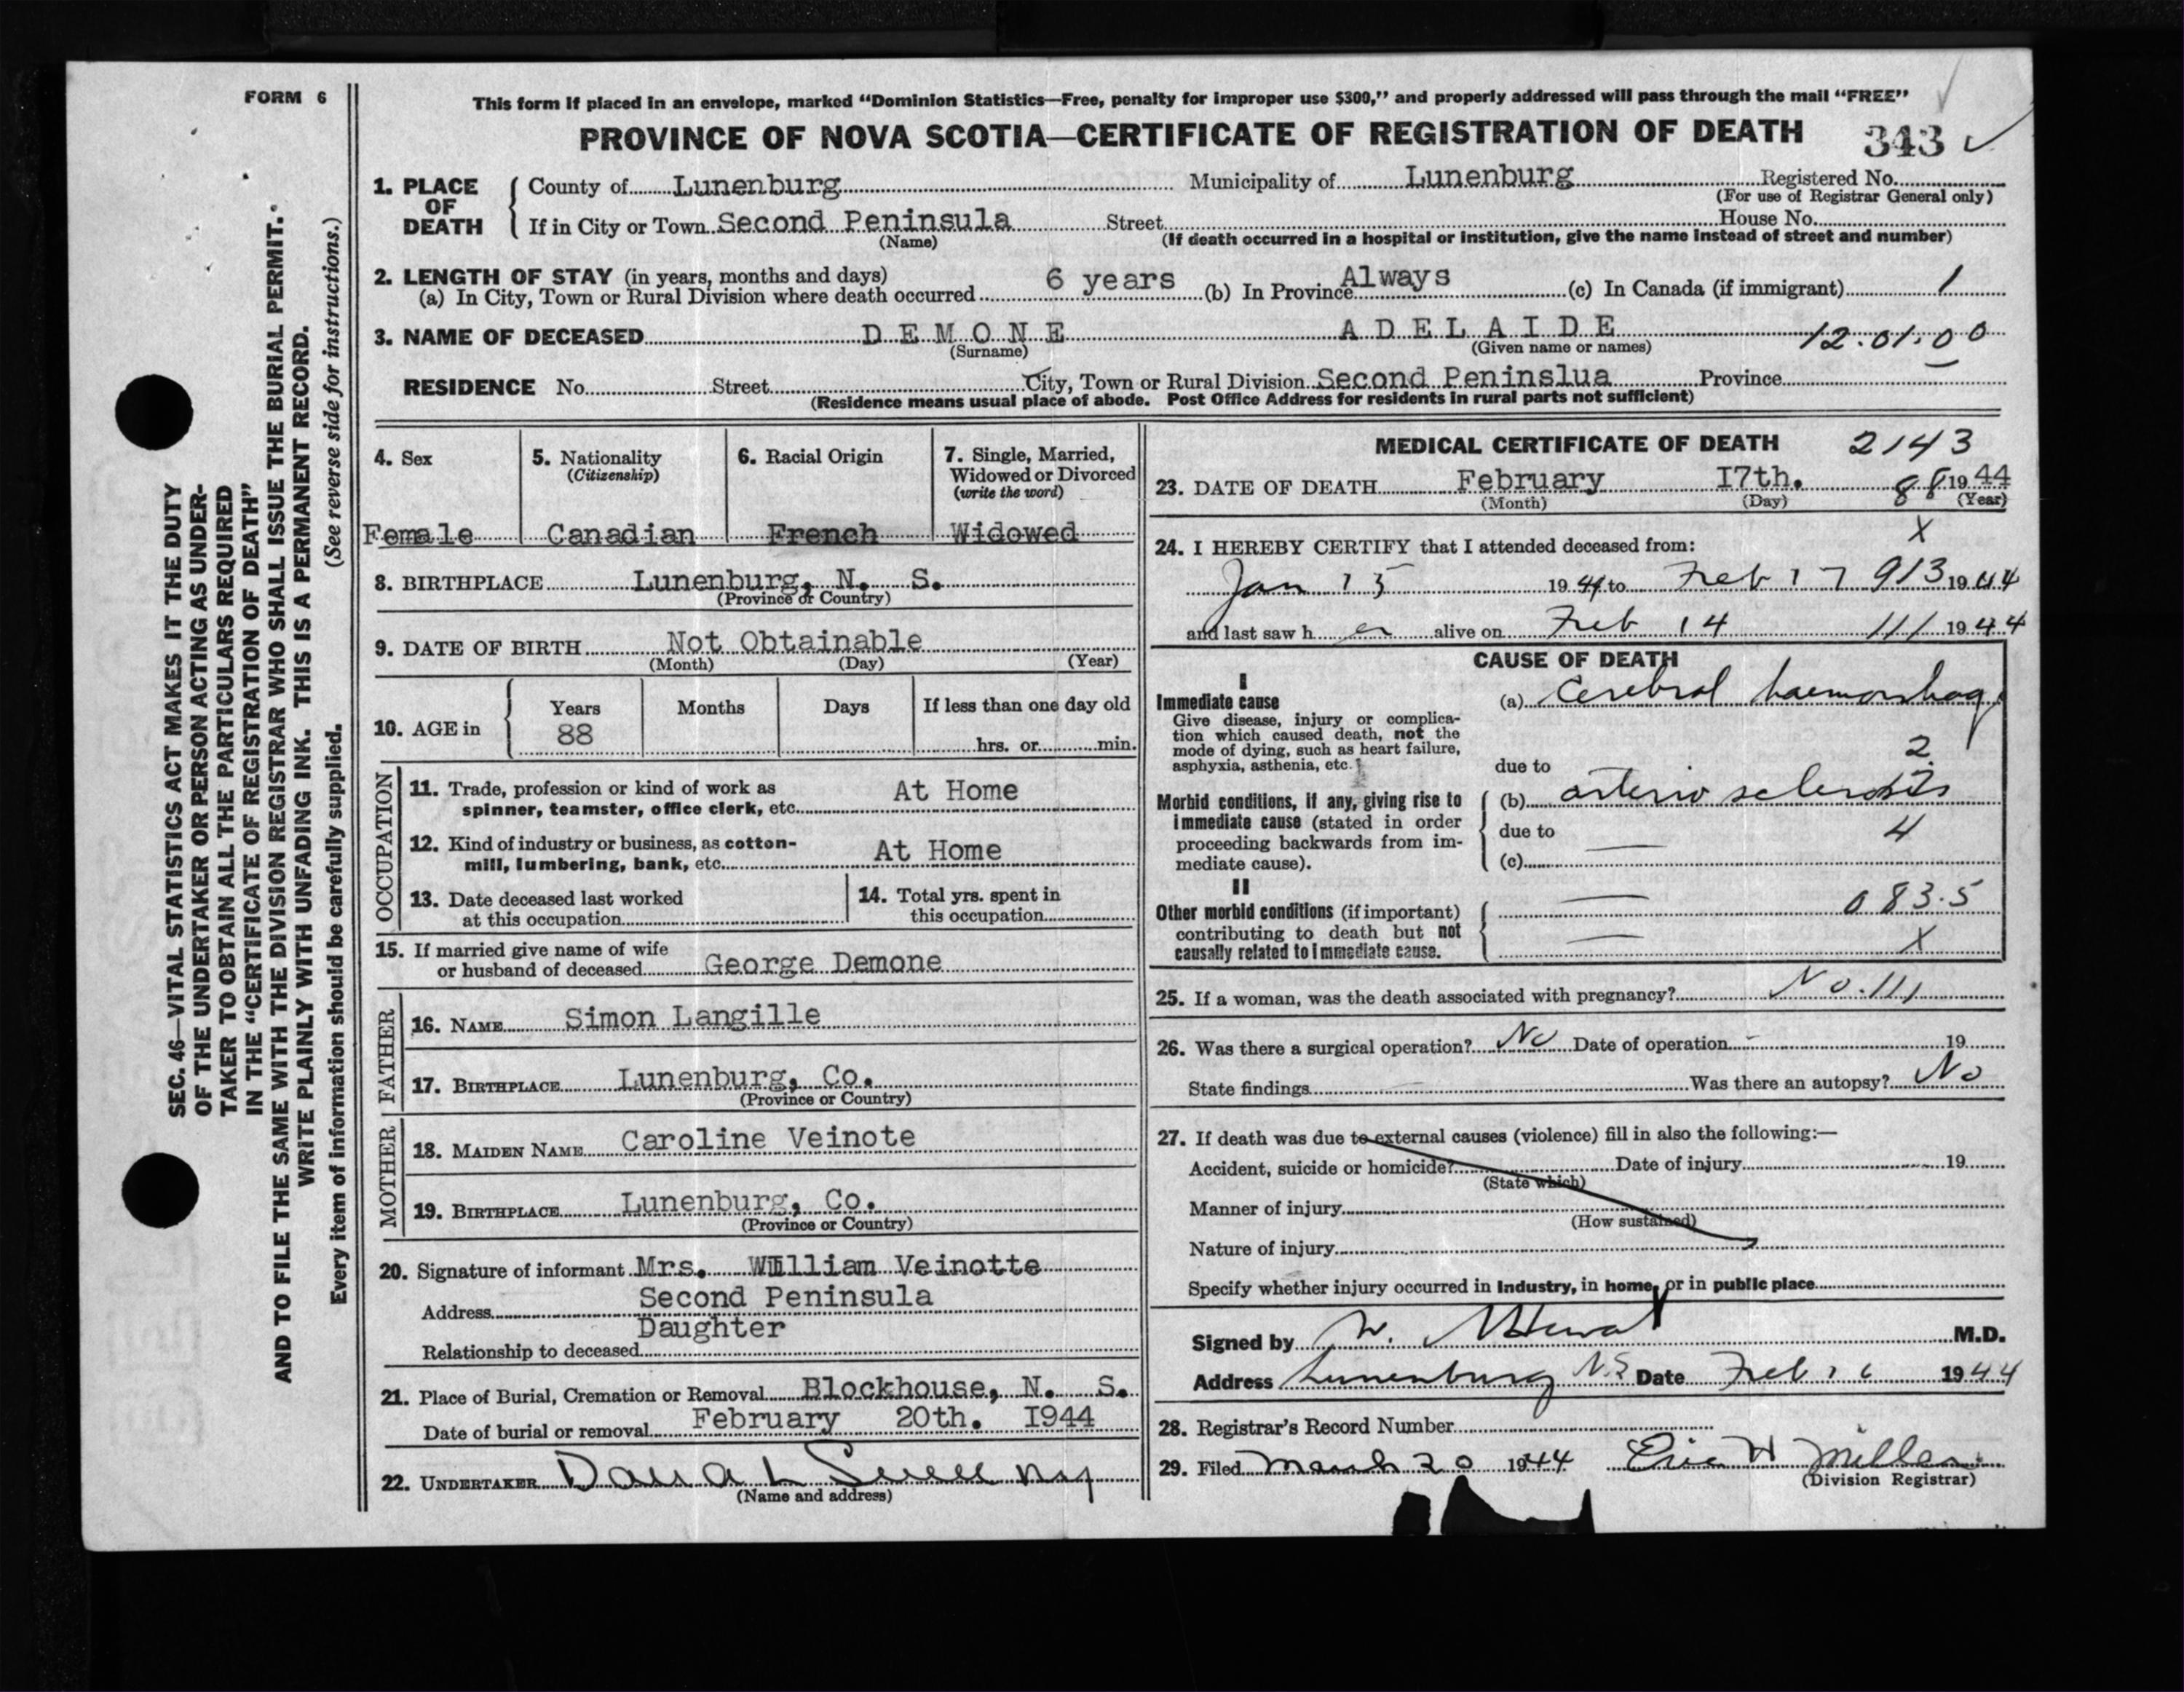 FORM 6
This form if placed in an envelope, marked “Dominion Statistics—Free, penalty for improper use $300,” and properly addressed will pass through the mail “FREE”
PROVINCE OF NOVA SCOTIA—CERTIFICATE OF REGISTRATION OF DEATH 343
1. PLACE OF DEATH
County of Lunenburg Municipality of Lunenburg Registered No.
(For use of Registrar General only)
If in City or Town Second Peninsula Street House No.
(Name) (If death occurred in a hospital or institution, give the name instead of street and number)
2. LENGTH OF STAY (in years, months and days)
(a) In City, Town or Rural Division where death occurred 6 years (b) In Province Always (c) In Canada (if immigrant) 1
3. NAME OF DECEASED DEMONE ADELAIDE 12.01.00
(Surname) (Given name or names)
RESIDENCE No. Street City, Town or Rural Division Second Peninslua Province
(Residence means usual place of abode. Post Office Address for residents in rural parts not sufficient)
4. Sex
Female
5. Nationality
(Citizenship)
Canadian
6. Racial Origin
French
7. Single, Married, Widowed or Divorced
(write the word)
Widowed
8. BIRTHPLACE Lunenburg, N. S.
(Province or Country)
9. DATE OF BIRTH Not Obtainable
(Month) (Day) (Year)
10. AGE in
Years Months Days If less than one day old
88 hrs. or min.
OCCUPATION
11. Trade, profession or kind of work as
spinner, teamster, office clerk, etc. At Home
12. Kind of industry or business, as cotton-
mill, lumbering, bank, etc. At Home
13. Date deceased last worked
at this occupation
14. Total yrs. spent in
this occupation
15. If married give name of wife
or husband of deceased George Demone
FATHER
16. NAME Simon Langille
17. BIRTHPLACE Lunenburg, Co.
(Province or Country)
MOTHER
18. MAIDEN NAME Caroline Veinote
19. BIRTHPLACE Lunenburg, Co.
(Province or Country)
20. Signature of informant Mrs. William Veinotte
Address Second Peninsula
Relationship to deceased Daughter
21. Place of Burial, Cremation or Removal Blockhouse, N. S.
Date of burial or removal February 20th. I944
22. UNDERTAKER
(Name and address)
MEDICAL CERTIFICATE OF DEATH 2143
23. DATE OF DEATH February I7th. 88 1944
(Month) (Day) (Year)
X
24. I HEREBY CERTIFY that I attended deceased from:
Jan 15 1944 to Feb 17 913 1944
and last saw h er alive on Feb 14 111 1944
CAUSE OF DEATH
I
Immediate cause
Give disease, injury or complica-
tion which caused death, not the
mode of dying, such as heart failure,
asphyxia, asthenia, etc.
(a) Cerebral haemorrhage
2
due to
Morbid conditions, if any, giving rise to
immediate cause (stated in order
proceeding backwards from im-
mediate cause).
(b) arterio sclerosis
due to 4
(c)
II
Other morbid conditions (if important)
contributing to death but not
causally related to immediate cause.
083.5
X
25. If a woman, was the death associated with pregnancy? No. 111
26. Was there a surgical operation? No Date of operation - 19
State findings Was there an autopsy? No
27. If death was due to external causes (violence) fill in also the following:—
Accident, suicide or homicide? Date of injury 19
(State which)
Manner of injury
(How sustained)
Nature of injury
Specify whether injury occurred in Industry, in home, or in public place
Signed by M.D.
Address Lunenburg N.S Date Feb 16 1944
28. Registrar's Record Number
29. Filed March 20 1944 Eric H Miller
(Division Registrar)
SEC. 46—VITAL STATISTICS ACT MAKES IT THE DUTY
OF THE UNDERTAKER OR PERSON ACTING AS UNDER-
TAKER TO OBTAIN ALL THE PARTICULARS REQUIRED
IN THE “CERTIFICATE OF REGISTRATION OF DEATH”
AND TO FILE THE SAME WITH THE DIVISION REGISTRAR WHO SHALL ISSUE THE BURIAL PERMIT.
WRITE PLAINLY WITH UNFADING INK. THIS IS A PERMANENT RECORD.
Every item of information should be carefully supplied. (See reverse side for instructions.)